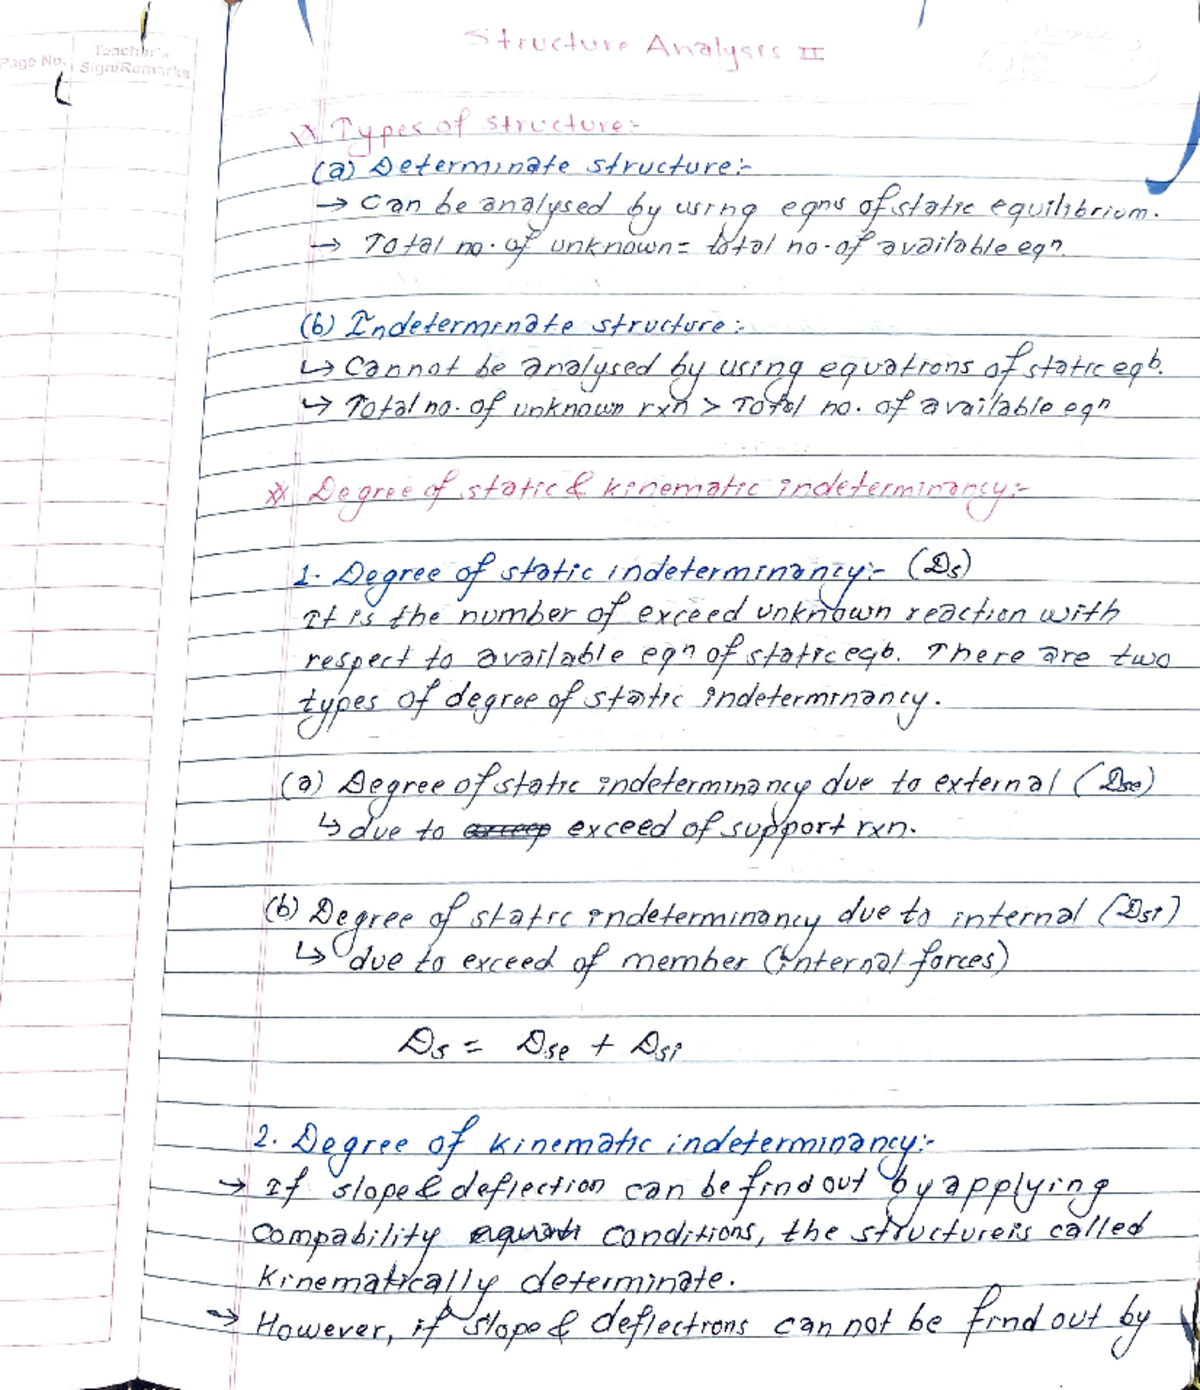 Structure Analysis II
Page No.
Teacher's
Sign/Remarks
Types of structure:-
(a) Determinate structure:-
→ Can be analysed by using eqns of static equilibrium.
→ Total no. of unknown = total no. of available eqn.
(b) Indeterminate structure:-
↳ Cannot be analysed by using equations of static eqb.
↳ Total no. of unknown rxn > Total no. of available eqn
Degree of static & kinematic indeterminancy:-
1. Degree of static indeterminancy:- (Ds)
It is the number of exceed unknown reaction with
respect to available eqn of static eqb. There are two
types of degree of static indeterminancy.
(a) Degree of static indeterminancy due to external (Dse)
↳ due to exceed of support rxn.
(b) Degree of static indeterminancy due to internal (Dsi)
↳ due to exceed of member (internal forces)
Ds = Dse + Dsi
2. Degree of kinematic indeterminancy:-
→ If slope & deflection can be find out by applying
Compability conditions, the structure is called
Kinematically determinate.
→ However, if slope & deflections can not be find out by